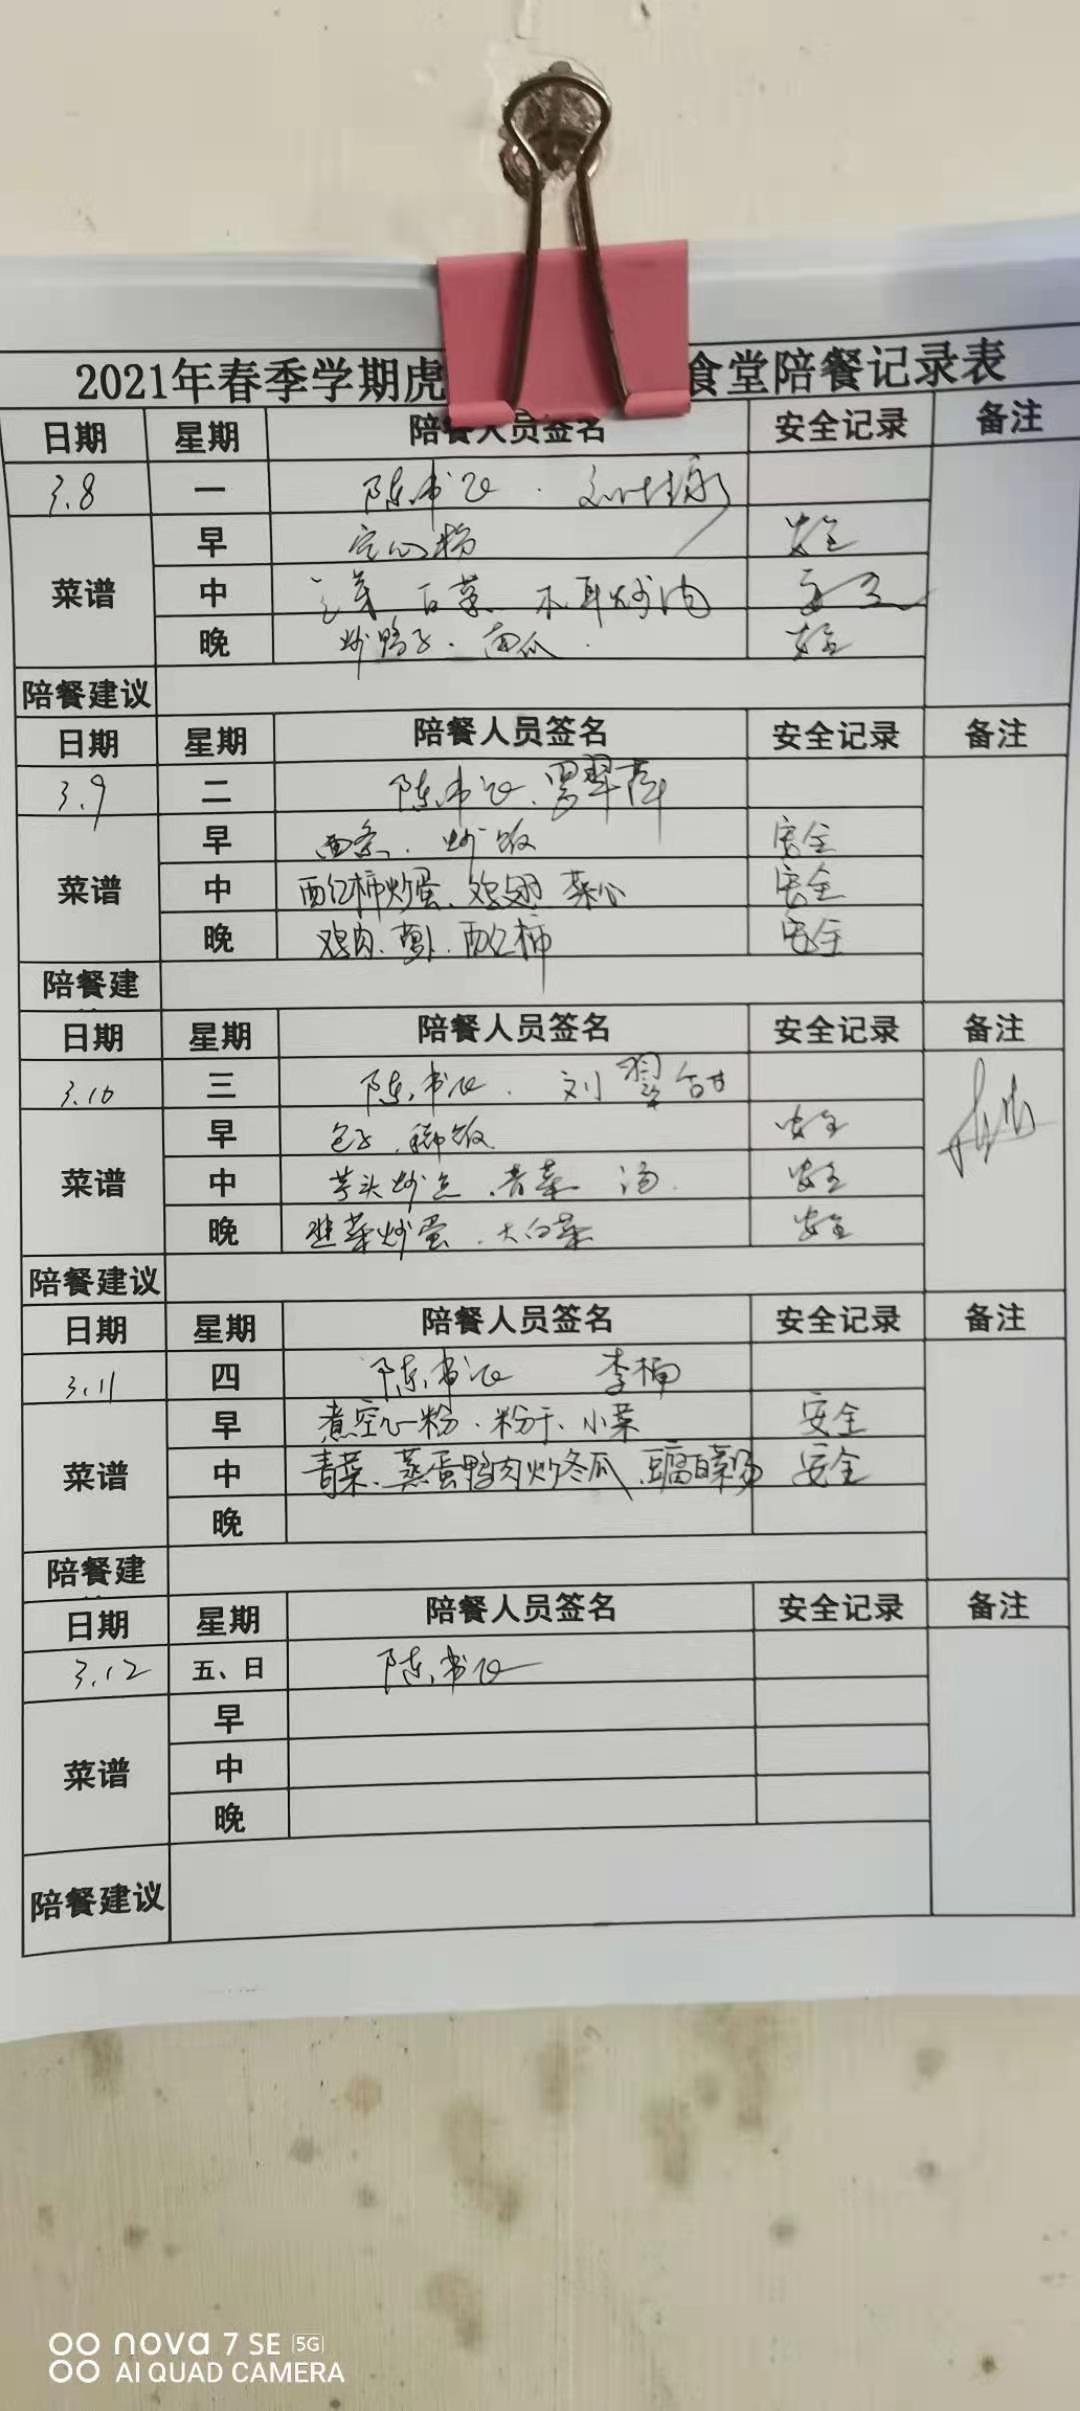 2021年春季学期虎 食堂陪餐记录表
日期 星期 陪餐人员签名 安全记录 备注
3.8 一 陈书记
早 空心粉 安全
菜谱 中 白菜 木耳炒肉 安全
晚 炒鸭子、南瓜 安全
陪餐建议
日期 星期 陪餐人员签名 安全记录 备注
3.9 二 陈书记、罗翠萍
早 面条、炒饭 安全
菜谱 中 西红柿炒蛋、鸡翅、菜心 安全
晚 鸡肉、萝卜、西红柿 安全
陪餐建
日期 星期 陪餐人员签名 安全记录 备注
3.10 三 陈书记、刘翠
早 包子、稀饭 安全
菜谱 中 芋头 青菜 汤 安全
晚 韭菜炒蛋、大白菜 安全
陪餐建议
日期 星期 陪餐人员签名 安全记录 备注
3.11 四 陈书记 李楠
早 煮空心粉、粉干、小菜 安全
菜谱 中 青菜、蒸蛋鸭肉炒冬瓜、豆腐白菜汤 安全
晚
陪餐建
日期 星期 陪餐人员签名 安全记录 备注
3.12 五、日 陈书记
早
菜谱 中
晚
陪餐建议
nova 7 SE 5G
AI QUAD CAMERA